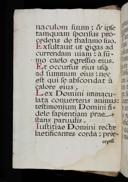 naculum suum; & ipse
tamquam sponsus pro-
cedens de thalamo suo.
Exsultavit ut gigas ad
currendam viam: a su-
mo caelo egressio eius.
Et occursus eius usq
ad summum eius: nec
est qui se abscondat à
calore eius.
Lex Domini immacu-
lata convertens animas:
testimonium Domini fi-
dele sapientiam præs-
tans parvulis.
Iustitiæ Domini rectæ
lætificantes corda: præ-